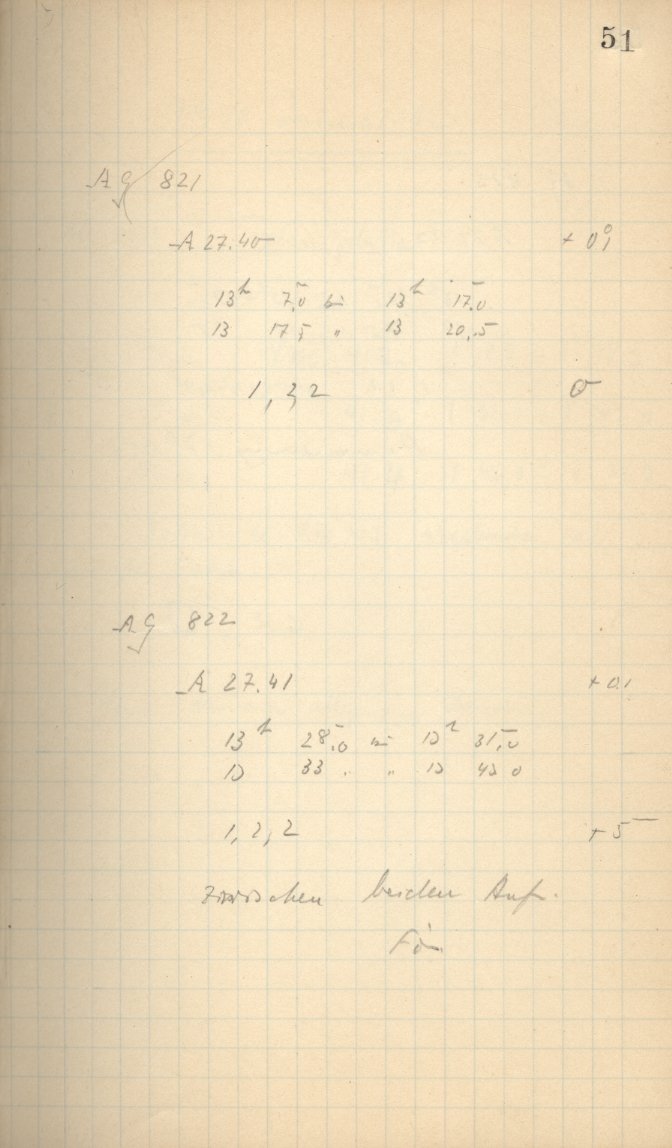 51
AG 821
A 27.40 + 0,1
13h 7,0 bis 13h 17,0
13 17,5 " 13 20,5
1, 2, 2 0
AG 822
A 27.41 + 0,1
13h 28,0 bis 13h 31,0
13 33 . " 13 43 0
1, 2, 2 + 5
zwischen beiden Aufn.